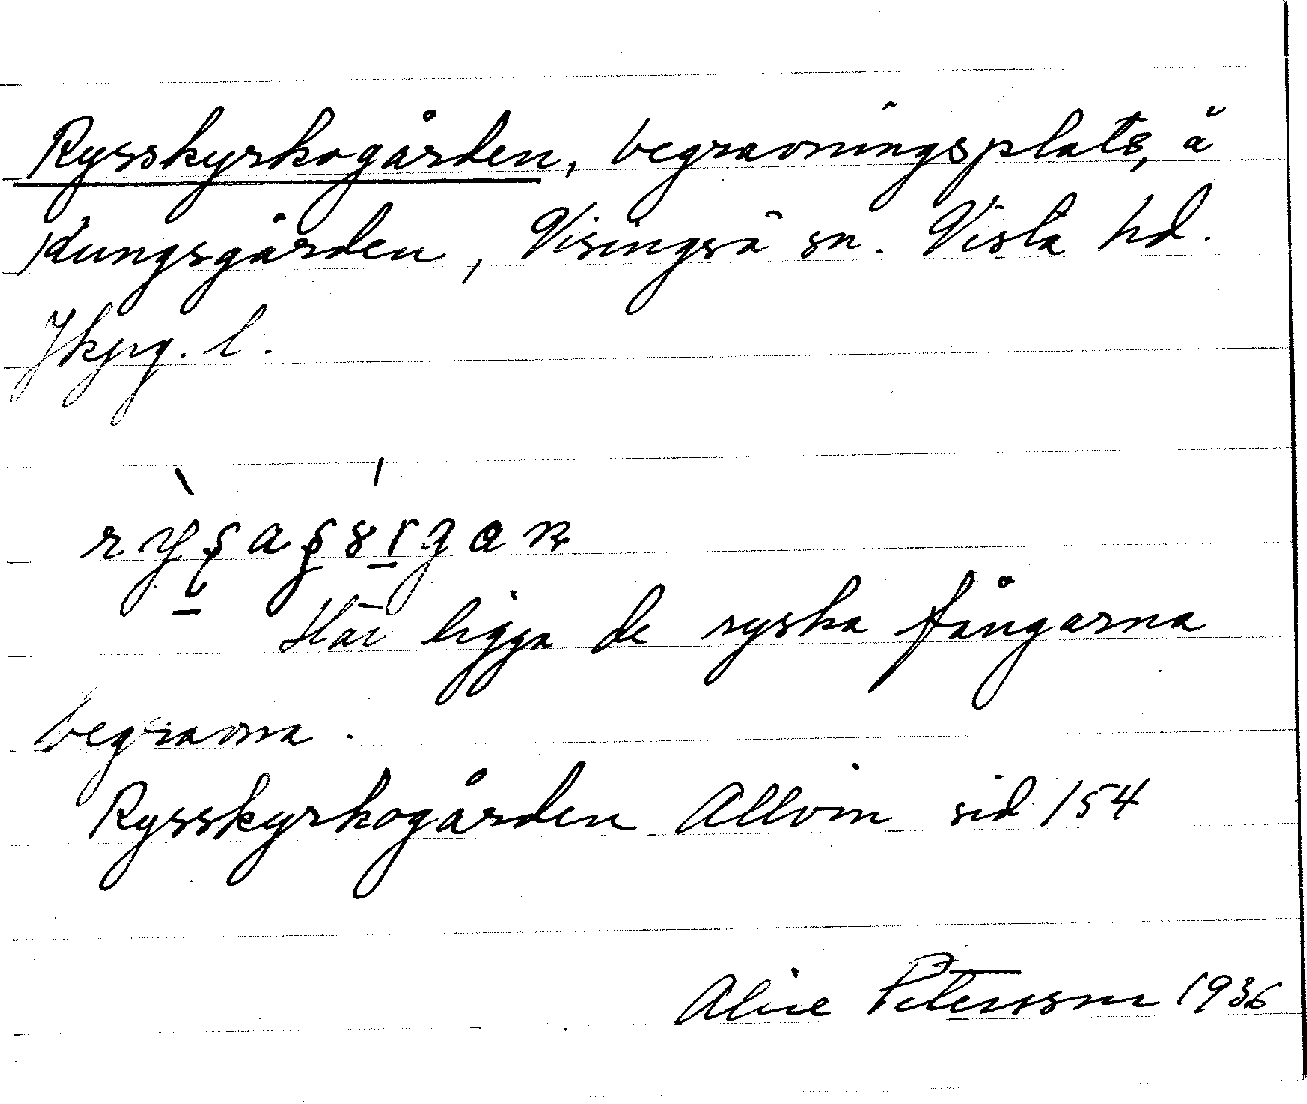 Rysskyrkogården, begravningsplats, å
Kungsgården, Visingsö sn. Vista hd.
Jkpg. l.
Här ligga de ryska fångarna
begravna.
Rysskyrkogården Allvin sid 154
Alice Petersson 1936